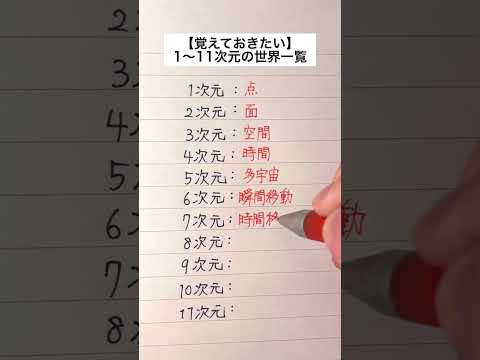 【覚えておきたい】
1〜11次元の世界一覧
1次元：点
2次元：面
3次元：空間
4次元：時間
5次元：多宇宙
6次元：瞬間移動
7次元：時間移
8次元：
9次元：
10次元：
11次元：
2次
3次
4次
5次
6次
7次
8次
動